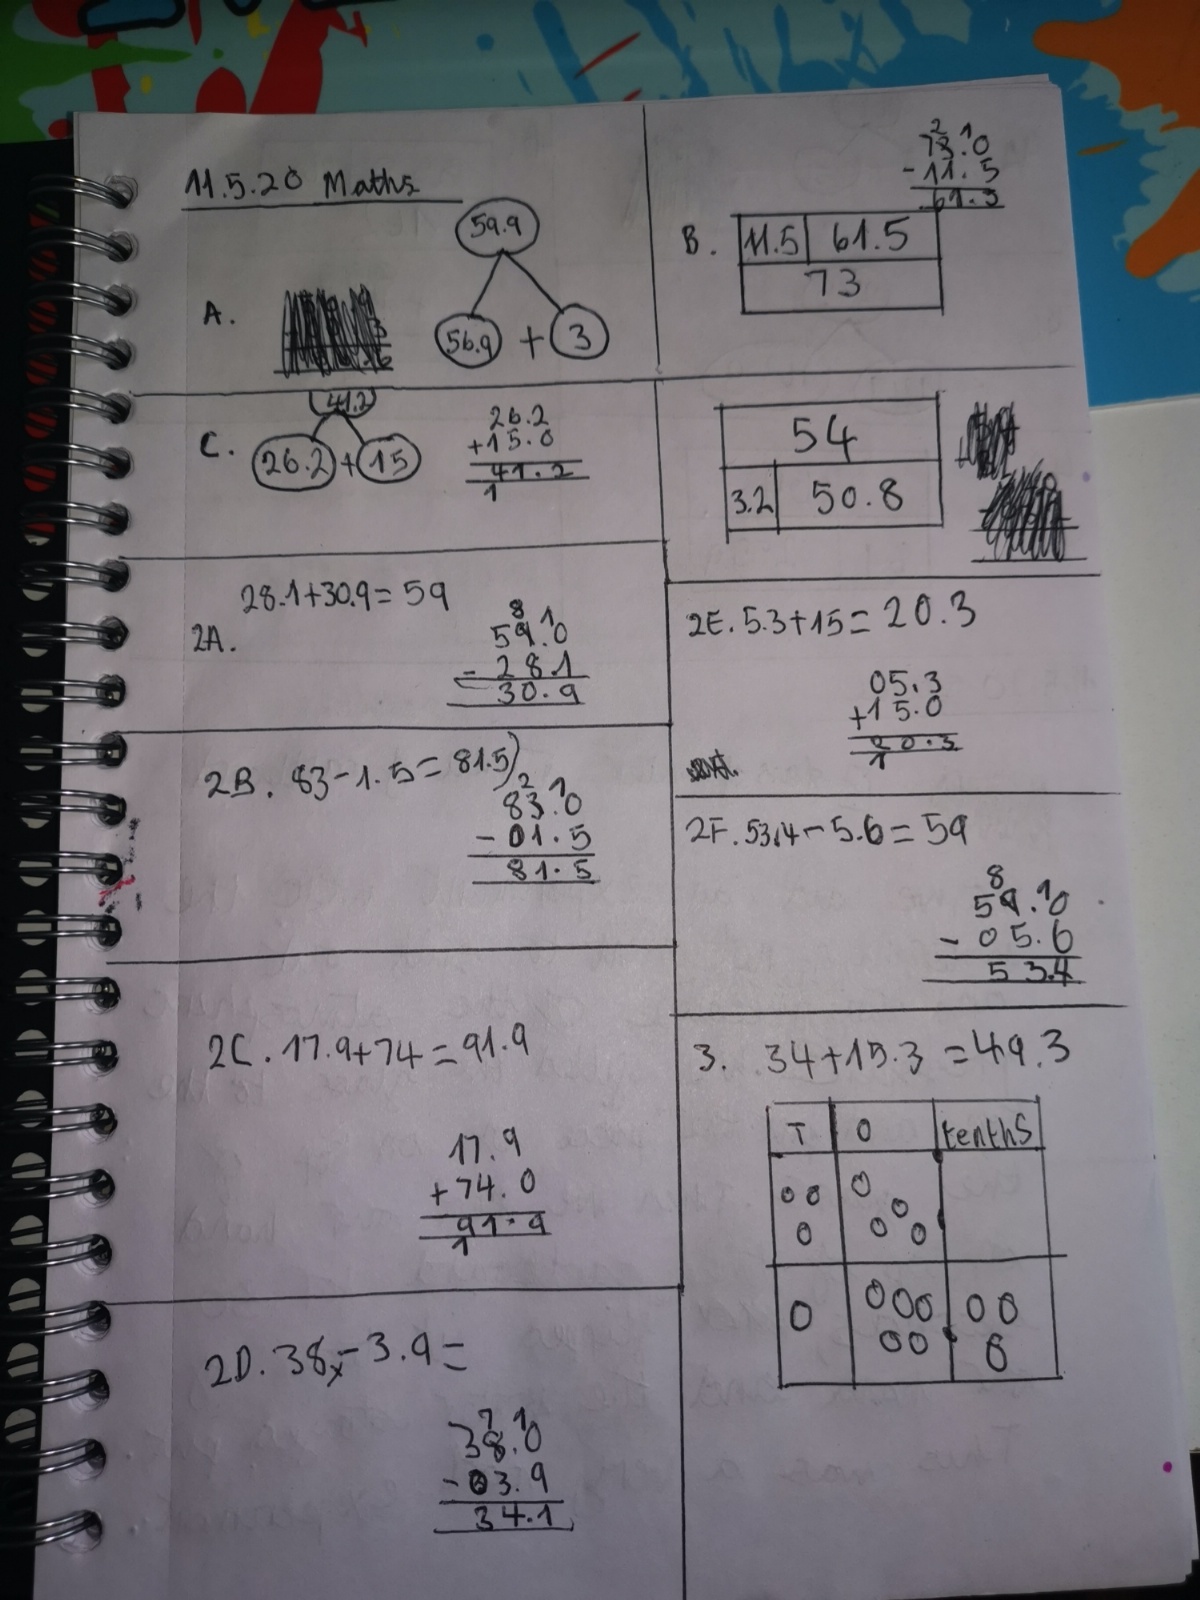 11.5.20 Maths
59.9
A.
56.9 + 3
2 1
73.0
- 11.5
61.5
B. 11.5 61.5
73
41.2
C. 26.2 + 15
26.2
+15.0
41.2
1
54
3.2 50.8
28.1+30.9=59
2A.
8 1
59.0
- 28.1
30.9
2B. 83-1.5=81.5
2 1
83.0
- 01.5
81.5
2C. 17.9+74=91.9
17.9
+74.0
91.9
1
2D. 38-3.9=
7 1
38.0
-03.9
34.1
2E. 5.3+15=20.3
05.3
+15.0
20.3
1
2F. 53.4-5.6=59
8 1
59.0
- 05.6
53.4
3. 34+15.3=49.3
T O tenths